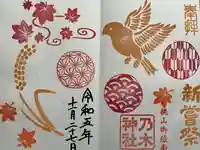 奉拝
新嘗祭
乃木
神社
令和五年
十一月二十七日